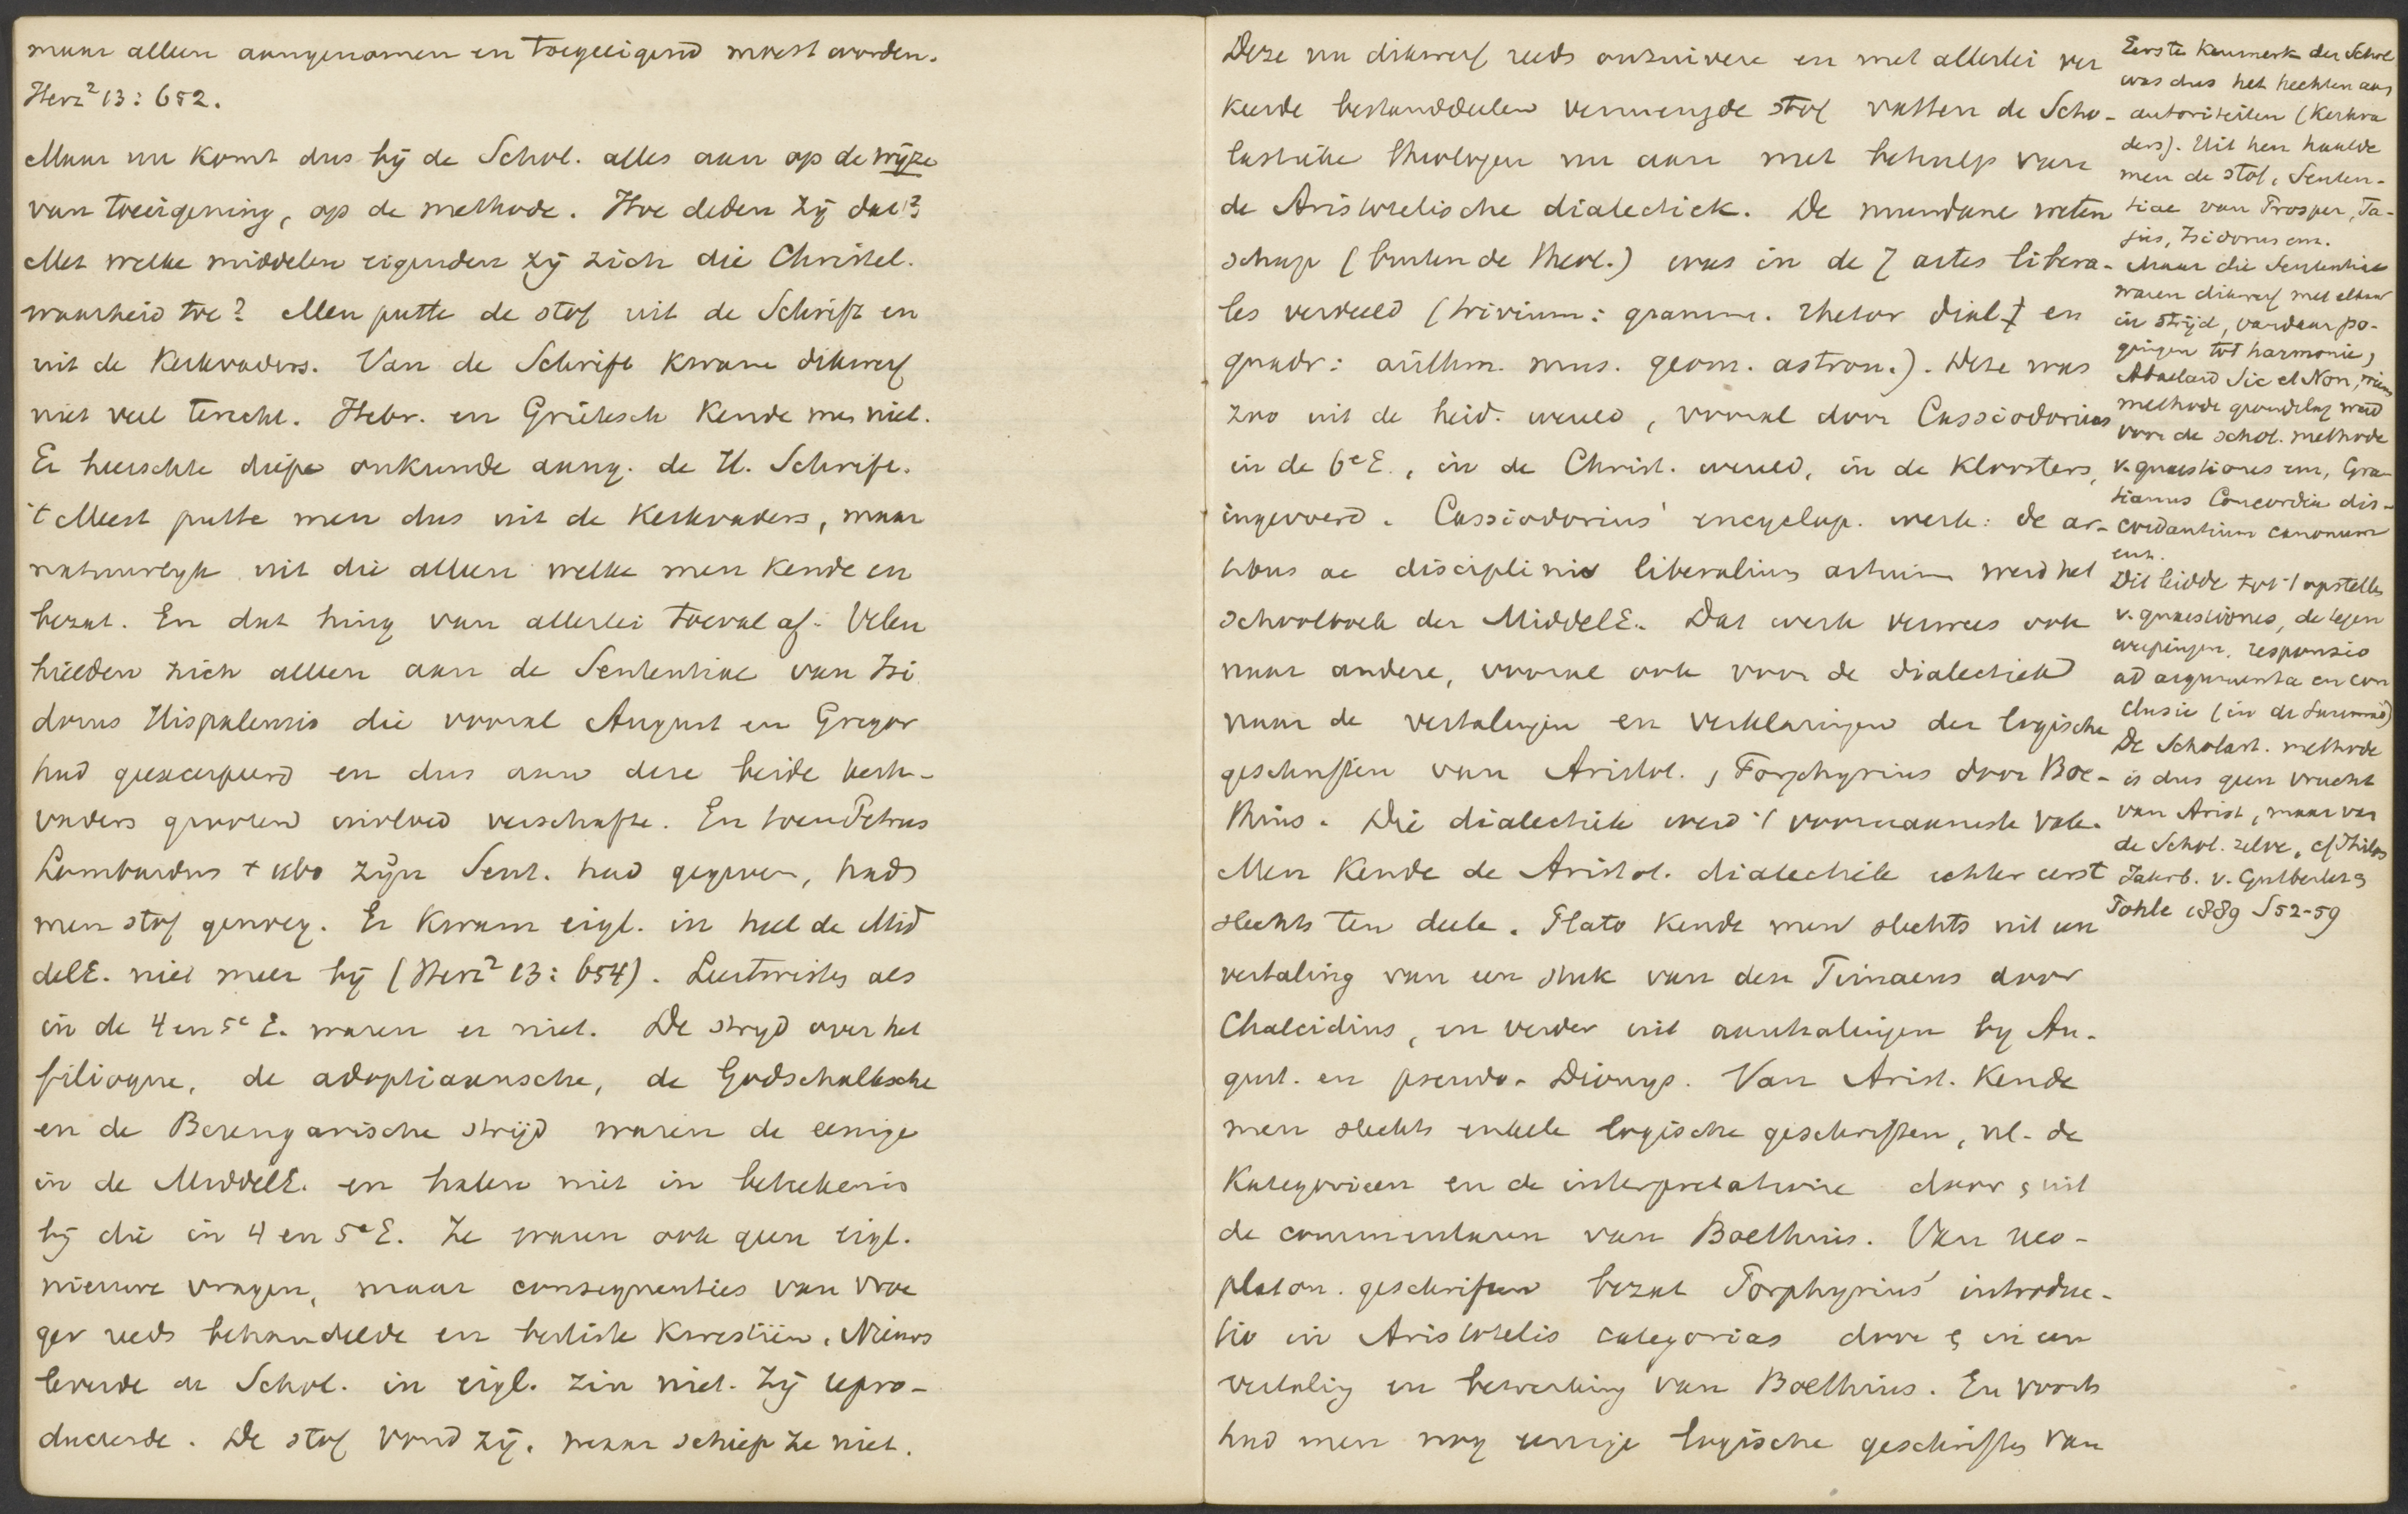 maar alleen aangenomen en toegeeigend moest worden.
Herz² 13: 652.
Maar nu komt dus bij de Schol. alles aan op de wijze
van toeeigening, op de methode. Hoe deden zij dat?
Met welke middelen eigenden zij zich die Christel.
waarheid toe? Men putte de stof uit de Schrift en
uit de Kerkvaders. Van de Schrift kwam dikwerf
niet veel terecht. Hebr. en Grieksch kende men niet.
Er heerschte diepe onkunde aang. de H. Schrift.
't Meest putte men dus uit de Kerkvaders, maar
natuurlijk uit die alleen welke men kende en
bezat. En dat hing van allerlei toeval af. Velen
hielden zich alleen aan de Sententiae van Isi
dorus Hispalensis die vooral August en Gregor
had geexcerpeerd en dus aan deze beide kerk-
vaders grooten invloed verschafte. En toen Petrus
Lombardus † 1160 zijn Sent. had gegeven, had
men stof genoeg. Er kwam eigl. in heel de Mid
delE. niet meer bij (Herz² 13: 654). Leertwisten als
in de 4 en 5e E. waren er niet. De strijd over het
filioque, de adoptiaansche, de Godschalksche
en de Berengarische strijd waren de eenige
in de MiddelE. en halen niet in beteekenis
bij die in 4 en 5e E. Ze waren ook geen eigl.
nieuwe vragen, maar consequenties van vroe
ger reeds behandelde en besliste kwestiën. Nieuws
leverde de Schol. in eigl. zin niet. Zij repro-
duceerde. De stof vond zij, maar schiep ze niet.
Deze nu dikwerf reeds onzuivere en met allerlei ver
keerde bestanddeelen vermengde stof vatten de Scho-
lastieke theologen nu aan met behulp van
de Aristotelische dialectiek. De mundane weten
schap (buiten de theol.) was in de 7 artes libera-
les verdeeld (trivium: gramm. rhetor dial. en
quadr: arithm. mus. geom. astron.). Deze was
zoo uit de heid. wereld, vooral door Cassiodorius
in de 6e E., in de Christ. wereld, in de kloosters,
ingevoerd. Cassiodorius' encyclop. werk: de ar-
tibus ac disciplinis liberalium artium werd het
schoolboek der MiddelE. Dat werk verwees ook
naar andere, vooral ook voor de dialectiek
naar de vertalingen en verklaringen der logische
geschriften van Aristot., Porphyrius door Boe-
thius. Die dialectiek werd 't voornaamste vak.
Men kende de Aristot. dialectiek echter eerst
slechts ten deele. Plato kende men slechts uit een
vertaling van een stuk van den Timaeus door
Chalcidius, en verder uit aanhalingen bij Au-
gust. en pseudo-Dionys. Van Arist. kende
men slechts enkele logische geschriften, nl. de
Kategorieen en de interpretatione door uit
de commentaren van Boethius. Van neo-
platon. geschriften bezat Porphyrius' introduc-
tio in Aristotelis categorias door in een
vertaling en bewerking van Boethius. En voorts
had men nog eenige logische geschriften van
Eerste kenmerk der Schol
was dus het hechten aan
autoriteiten (Kerkva
ders). Uit hen haalde
men de stof, Senten-
tiae van Prosper, Ta-
jus, Isidorus enz.
Maar die Sententiae
waren dikwerf met elkaar
in strijd, vandaar po-
gingen tot harmonie,
Abaelard Sic et Non, wiens
methode grondslag werd
voor de schol. methode
v. quaestiones enz, Gra-
tianus Concordia dis-
cordantium canonum
enz.
Dit leidde tot 't opstellen
v. quaestiones, de tegen
werpingen, responsio
ad argumenta en con
clusie (in de Summa)
De Scholast. methode
is dus geen vrucht
van Arist, maar van
de Schol. zelve, cf Philos
Jahrb. v. Gutberlet &
Pohle 1889 S 52-59